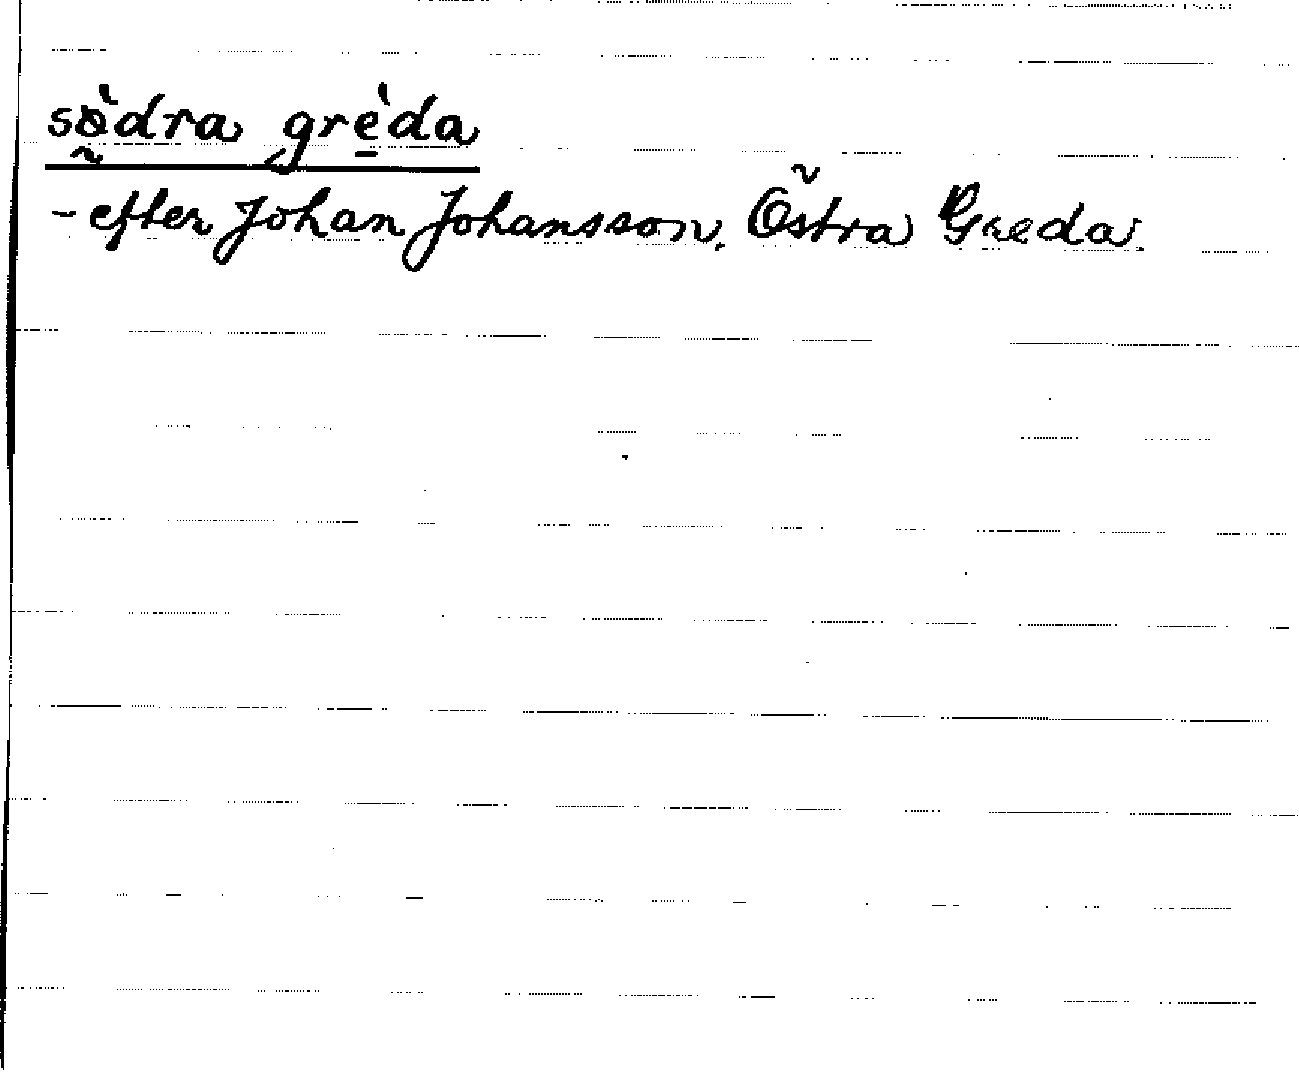 sö̀dra grè̱da
- efter Johan Johansson, Östra Greda.